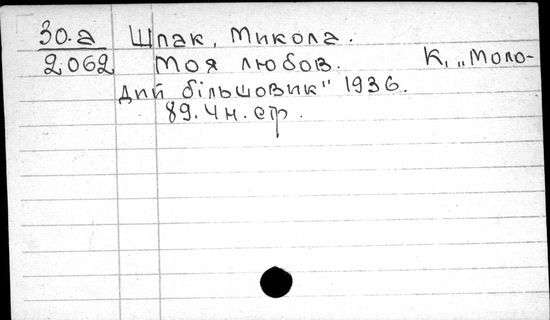 30.а Шпак, Микола.
2.062 Моя любов. К, „Моло-
дий більшовик" 1936.
89.4н.стр.